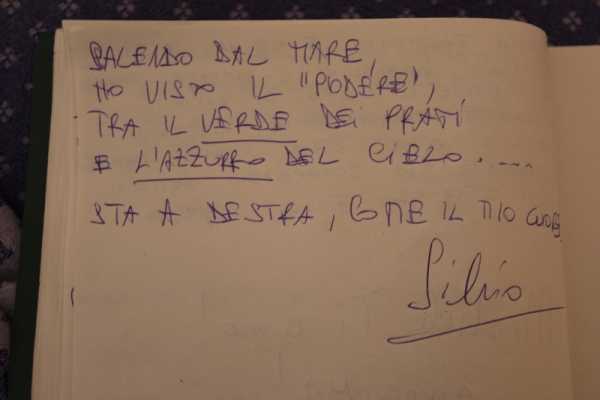 SALENDO DAL MARE,
HO VISTO IL "PODERE",
TRA IL VERDE DEI PRATI
E L'AZZURRO DEL CIELO. ....
STA A DESTRA, COME IL MIO CUORE.
Silvio